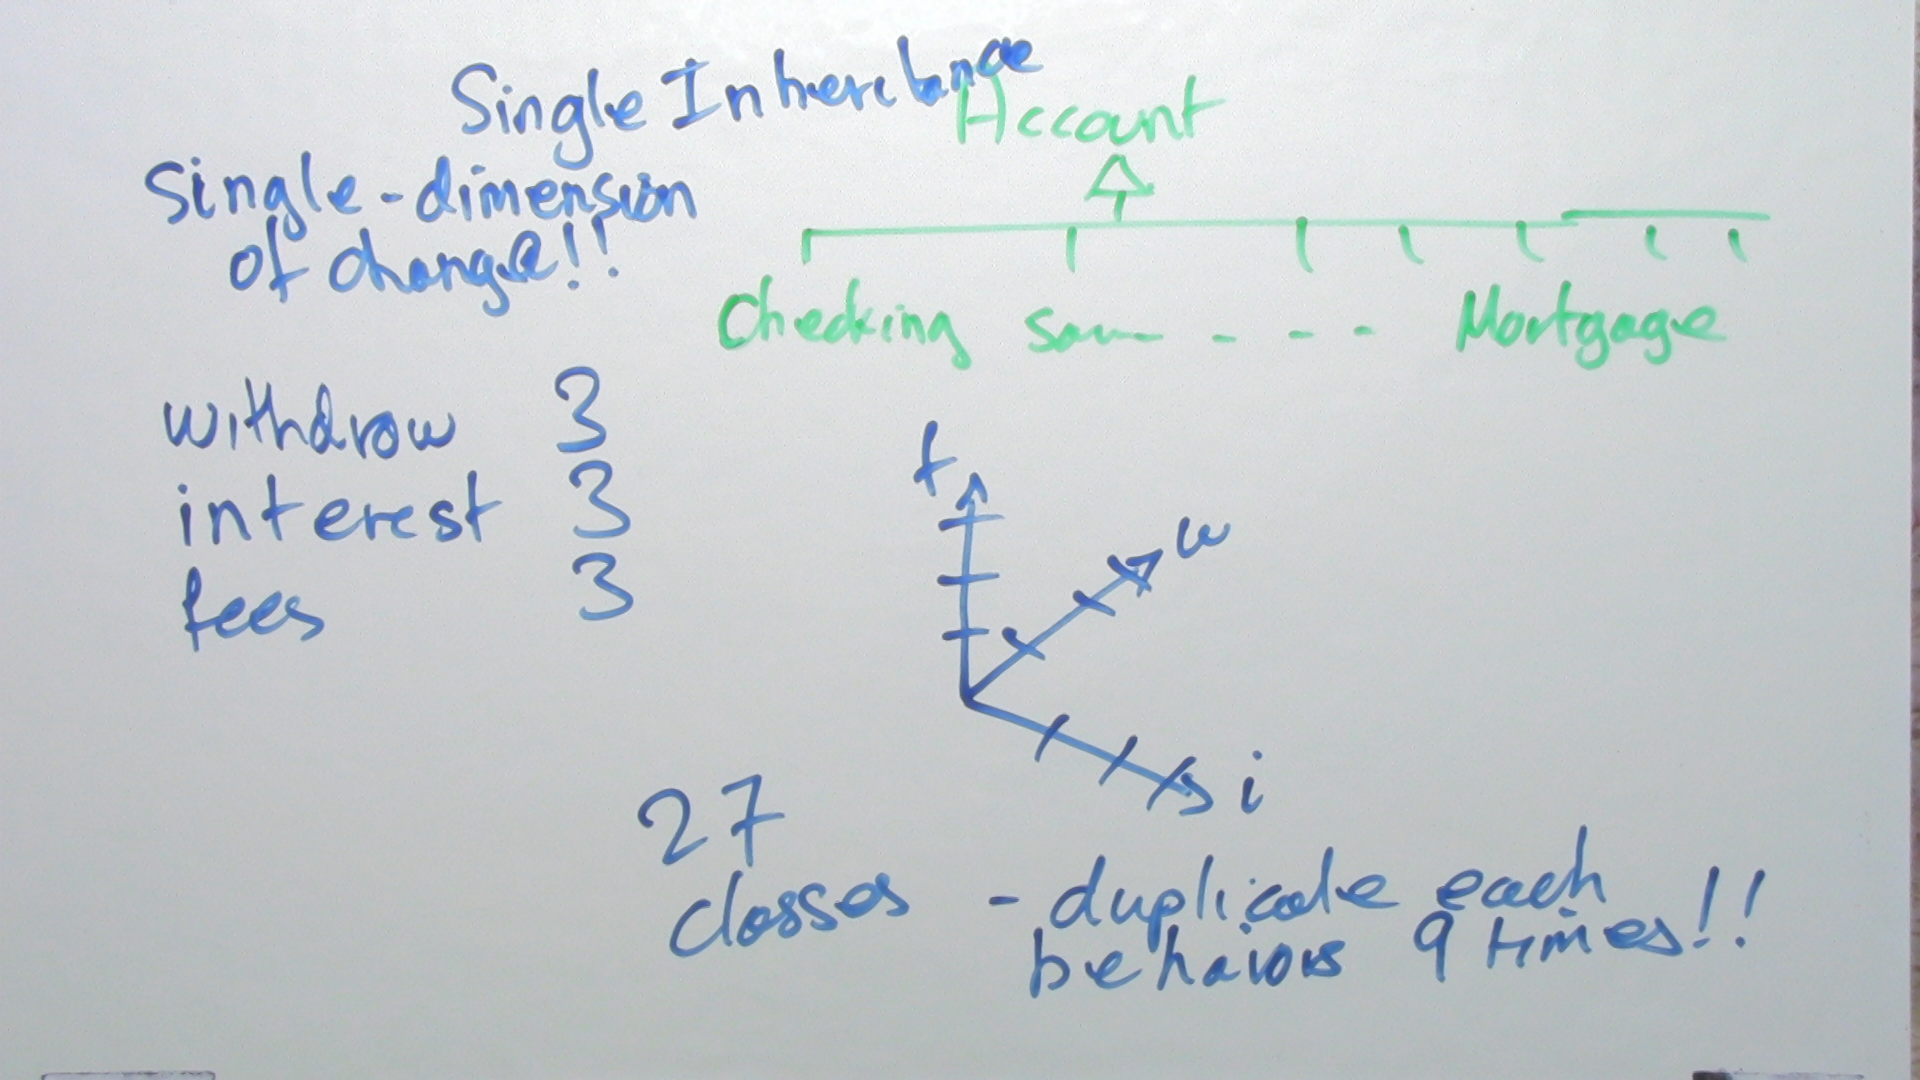 Single Inheritance
Single-dimension
of change!!
Account
Checking Sav - - - Mortgage
withdraw 3
interest 3
fees 3
f
w
i
27
classes - duplicate each
behaviors 9 times!!